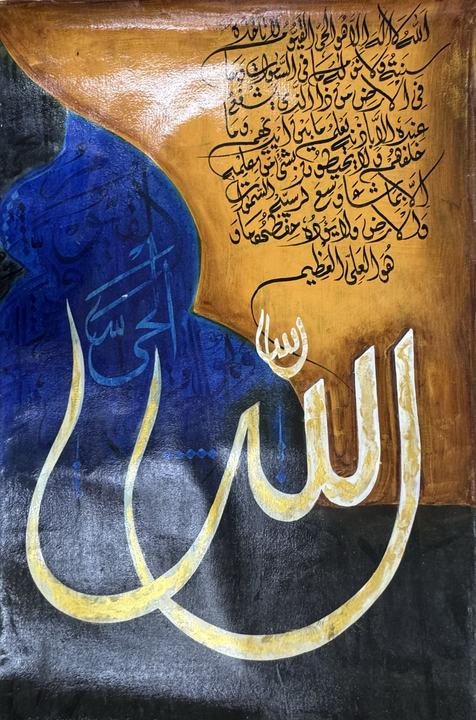 الله لا اله الا هو الحي القيوم لا تاخذه
سنة ولا نوم له ما في السموات وما
في الارض من ذا الذي يشفع
عنده الا باذنه يعلم ما بين ايديهم وما
خلفهم ولا يحيطون بشئ من علمه
الا بما شاء وسع كرسيه السموات
والارض ولا يؤده حفظهما و
هو العلي العظيم
القيوم
الحي
الله